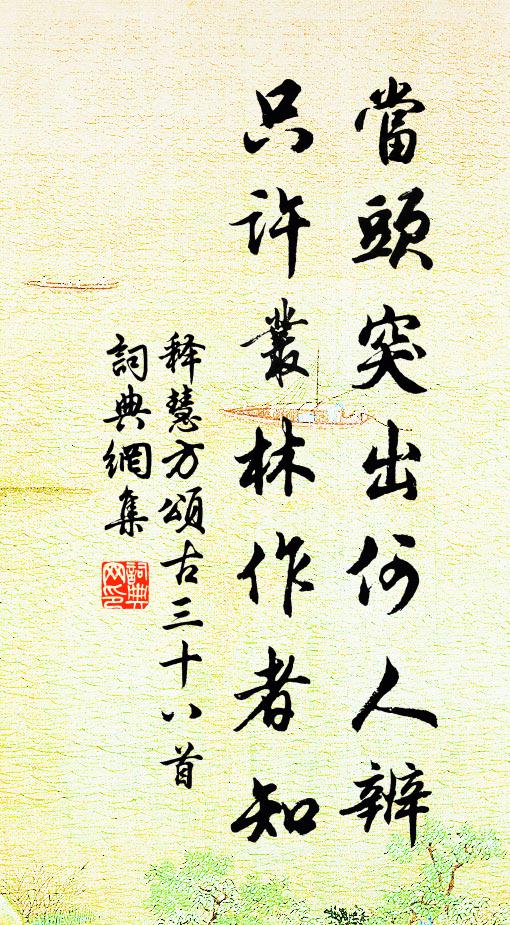 當頭突出何人辨
只許叢林作者知
释慧方頌古三十八首
詞典網集
詞典网印